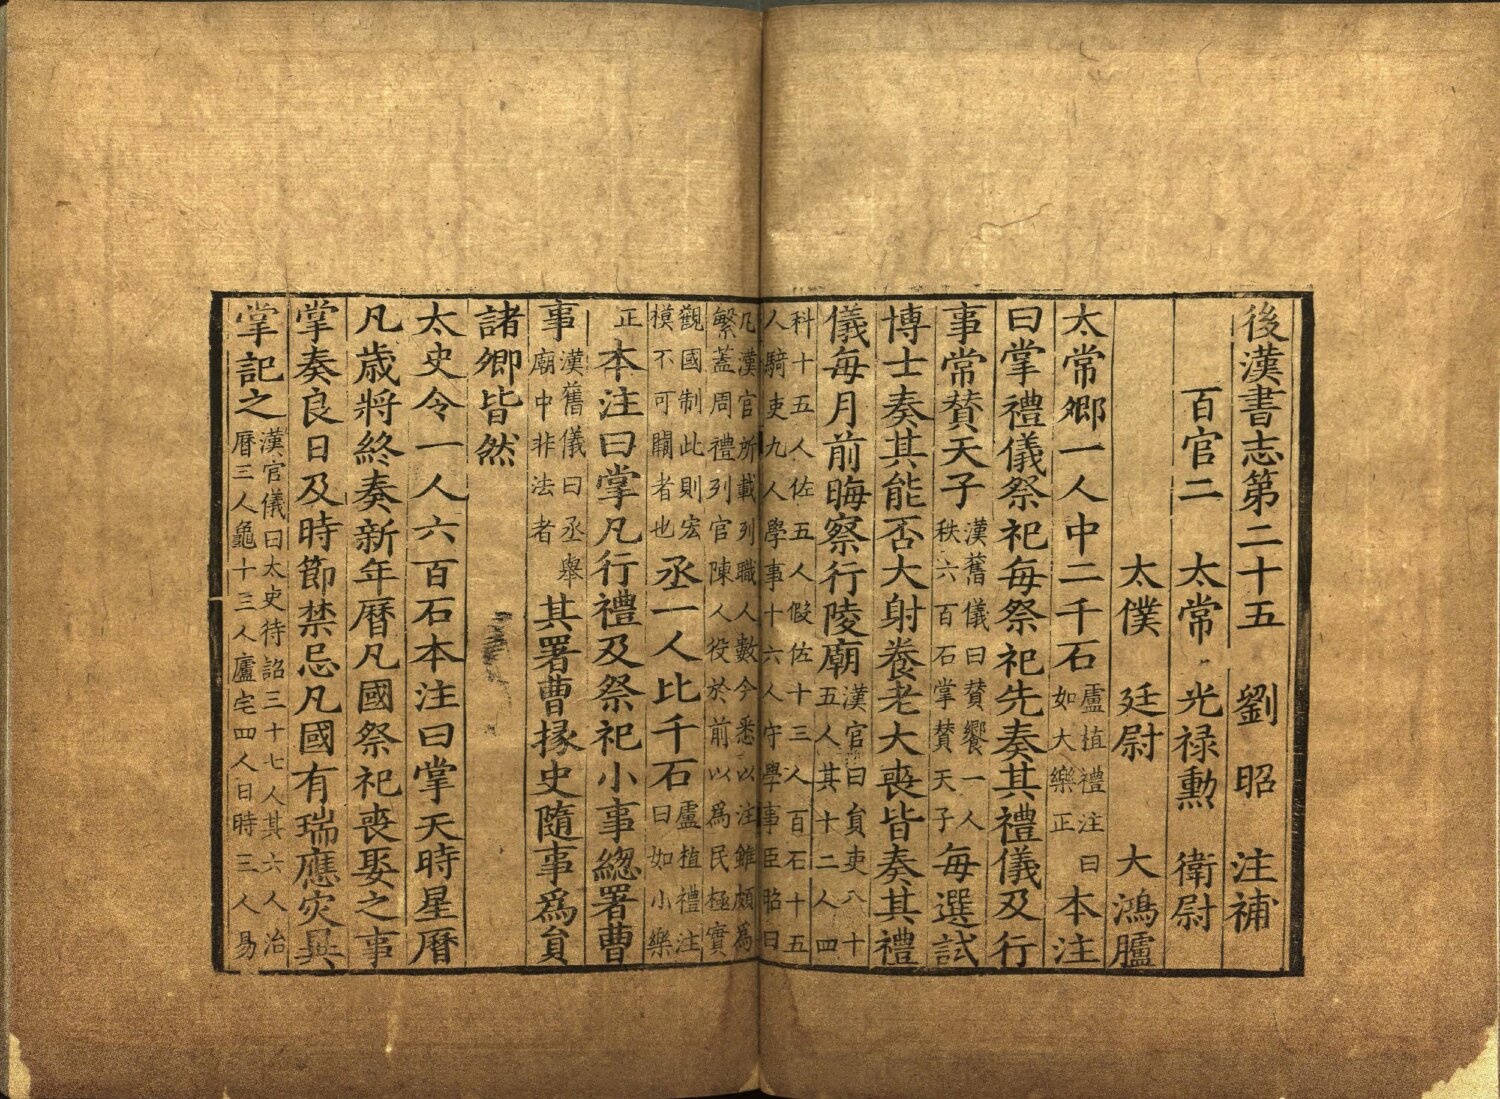 後漢書志第二十五 劉昭 注補
百官二 太常 光禄勳 衛尉
太僕 廷尉 大鴻臚
太常卿一人中二千石盧植禮注曰如大樂正本注
曰掌禮儀祭祀每祭祀先奏其禮儀及行
事常賛天子漢舊儀曰賛饗一人秩六百石掌賛天子每選試
博士奏其能否大射養老大喪皆奏其禮
儀每月前晦察行陵廟漢官曰貟吏八十五人其十二人四
科十五人佐五人假佐十三人百石十五人騎吏九人學事十六人守學事臣昭曰
凡漢官所載列職人數今悉以注雖頗為繁蓋周禮列官陳人役於前以為民極實
觀國制此則宏模不可闕者也丞一人比千石盧植禮注曰如小樂
正本注曰掌凡行禮及祭祀小事緫署曹
事漢舊儀曰丞舉廟中非法者其署曹掾史隨事爲貟
諸卿皆然
太史令一人六百石本注曰掌天時星曆
凡歳將終奏新年曆凡國祭祀喪娶之事
掌奏良日及時節禁忌凡國有瑞應灾異
掌記之漢官儀曰太史待詔三十七人其六人治曆三人龜十三人廬宅四人日時三人易